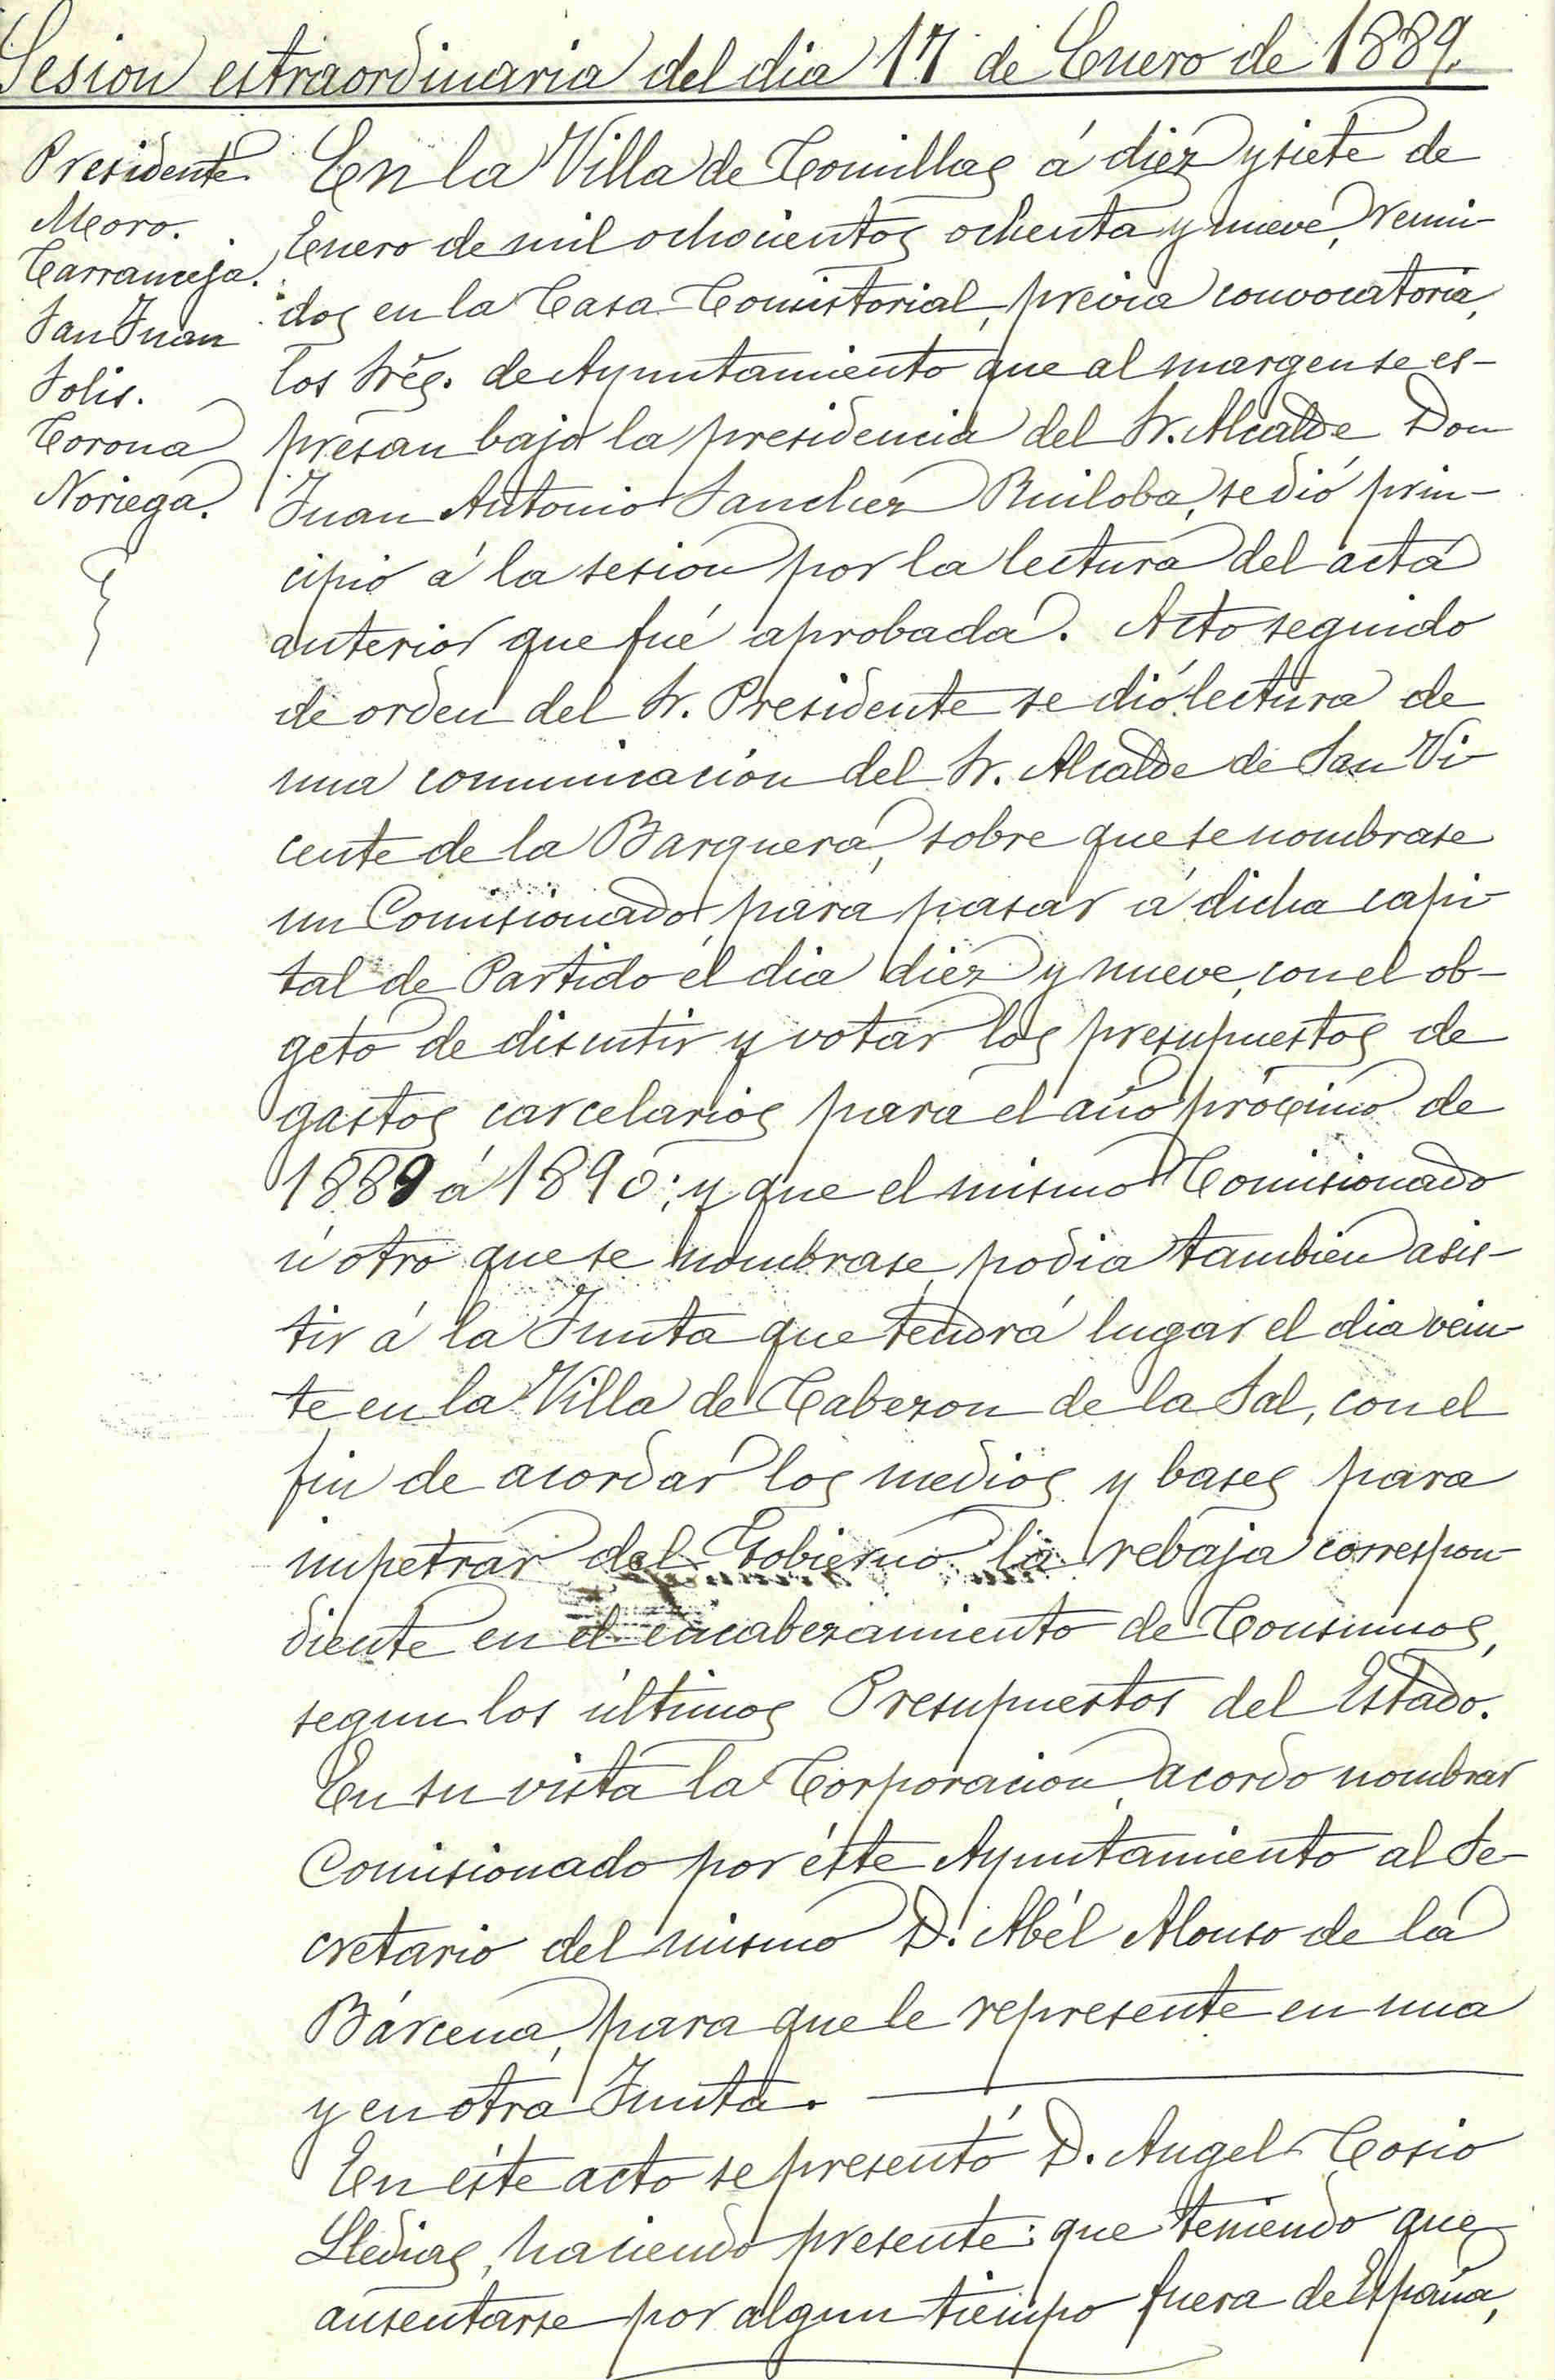 Sesion estraordinaria del dia 17 de Enero de 1889.
Presidente
Moro.
Carranceja.
San Juan
Solis.
Corona
Noriega.
En la Villa de Comillas á diez y siete de
Enero de mil ochocientos ochenta y nueve, reuni-
dos en la Casa Consistorial, previa convocatoria,
los Sres. de Ayuntamiento que al margen se es-
presan bajo la presidencia del Sr. Alcalde Don
Juan Antonio Sanchez Ruiloba, se dió prin-
cipio á la sesion por la lectura del acta
anterior que fué aprobada. Acto seguido
de orden del Sr. Presidente se dió lectura de
una comunicacion del Sr. Alcalde de San Vi-
cente de la Barquera, sobre que se nombrase
un Comisionado para pasar á dicha capi-
tal de Partido el dia diez y nueve, con el ob-
geto de discutir y votar los presupuestos de
gastos carcelarios para el año próximo de
1889 á 1890; y que el mismo Comisionado
ú otro que se nombrase, podia tambien asis-
tir á la Junta que tendrá lugar el dia vein-
te en la Villa de Cabezon de la Sal, con el
fin de acordar los medios y bases para
impetrar del Gobierno la rebaja correspon-
diente en el encabezamiento de Consumos,
segun los últimos Presupuestos del Estado.
En su vista la Corporacion, acordo nombrar
Comisionado por éste Ayuntamiento al Se-
cretario del mismo D. Abél Alonso de la
Bárcena, para que le represente en una
y en otra Junta.
En éste acto se presentó D. Angel Cosio
Lledias, haciendo presente: que teniendo que
ausentarse por algun tiempo fuera de España,